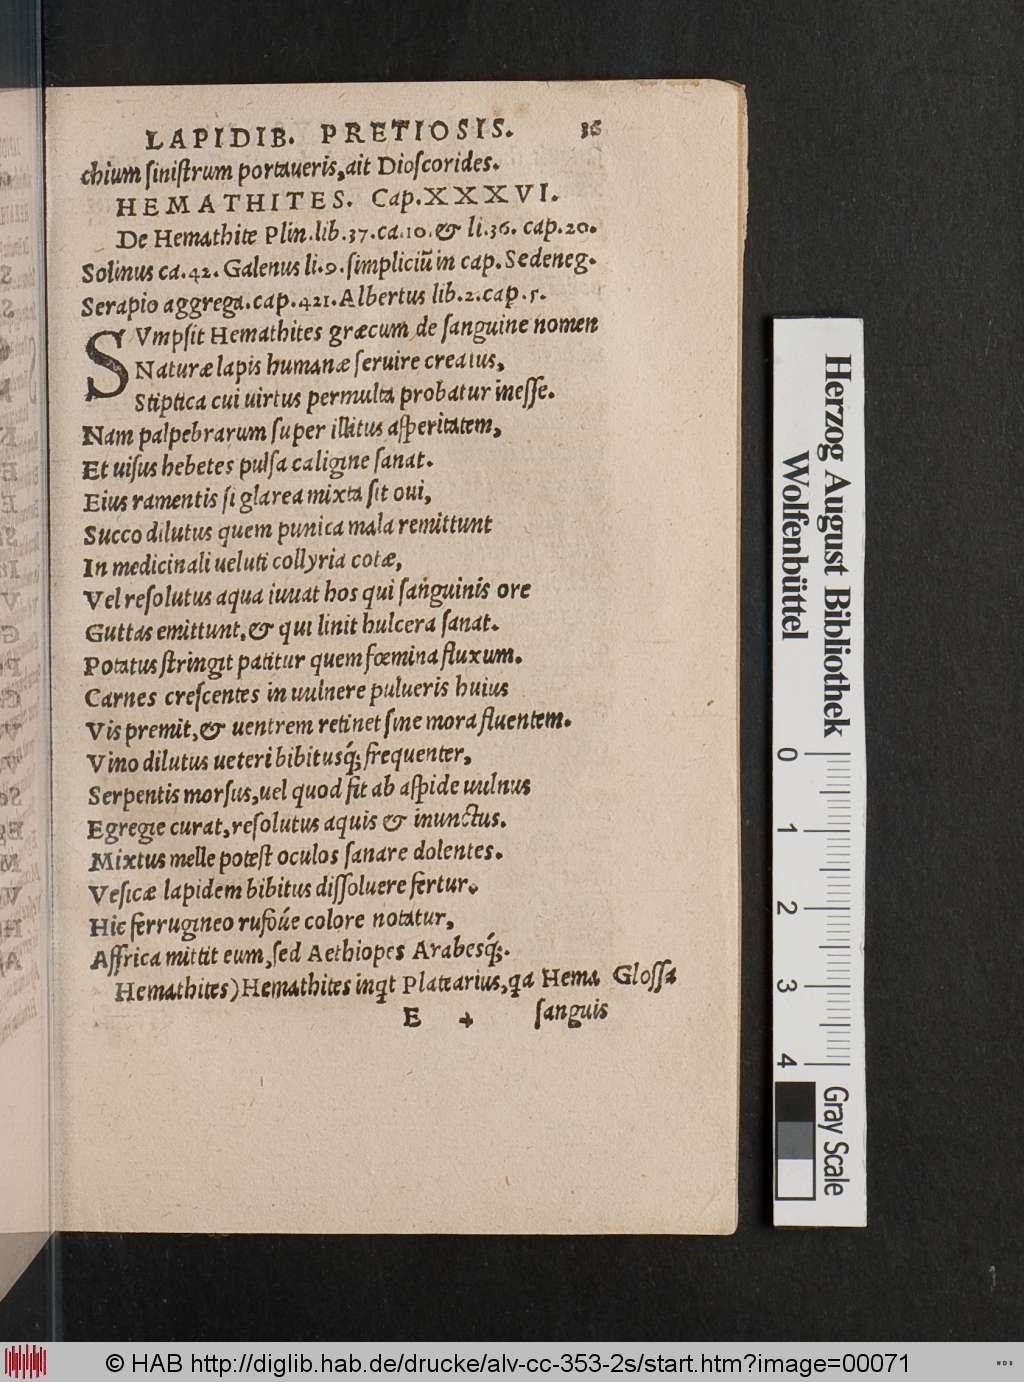 LAPIDIB. PRETIOSIS. 36
chium ſiniſtrum portaueris, ait Dioſcorides.
HEMATHITES. Cap. XXXVI.
De Hemathite Plin. lib. 37. ca. 10. & li. 36. cap. 20.
Solinus ca. 42. Galenus li. 9. ſimpliciũ in cap. Sedeneg.
Serapio aggrega. cap. 421. Albertus lib. 2. cap. 5.
SVmpſit Hemathites græcum de ſanguine nomen
Naturæ lapis humanæ ſeruire creatus,
Stiptica cui uirtus permulta probatur ineſſe.
Nam palpebrarum ſuper illitus aſperitatem,
Et uiſus hebetes pulſa caligine ſanat.
Eius ramentis ſi glarea mixta ſit oui,
Succo dilutus quem punica mala remittunt
In medicinali ueluti collyria cotæ,
Vel reſolutus aqua iuuat hos qui ſanguinis ore
Guttas emittunt, & qui linit hulcera ſanat.
Potatus ſtringit patitur quem fœmina fluxum.
Carnes creſcentes in uulnere pulueris huius
Vis premit, & uentrem retinet ſine mora fluentem.
Vino dilutus ueteri bibitusq́; frequenter,
Serpentis morſus, uel quod fit ab aſpide uulnus
Egregie curat, reſolutus aquis & inunctus.
Mixtus melle poteſt oculos ſanare dolentes.
Veſicæ lapidem bibitus diſſoluere fertur.
Hic ferrugineo rufoúe colore notatur,
Affrica mittit eum, ſed Aethiopes Arabesq́;.
Hemathites) Hemathites inqt Platearius, qa Hema Gloſſa
E 4 ſanguis
Herzog August Bibliothek
Wolfenbüttel
0 1 2 3 4
Gray Scale
© HAB http://diglib.hab.de/drucke/alv-cc-353-2s/start.htm?image=00071